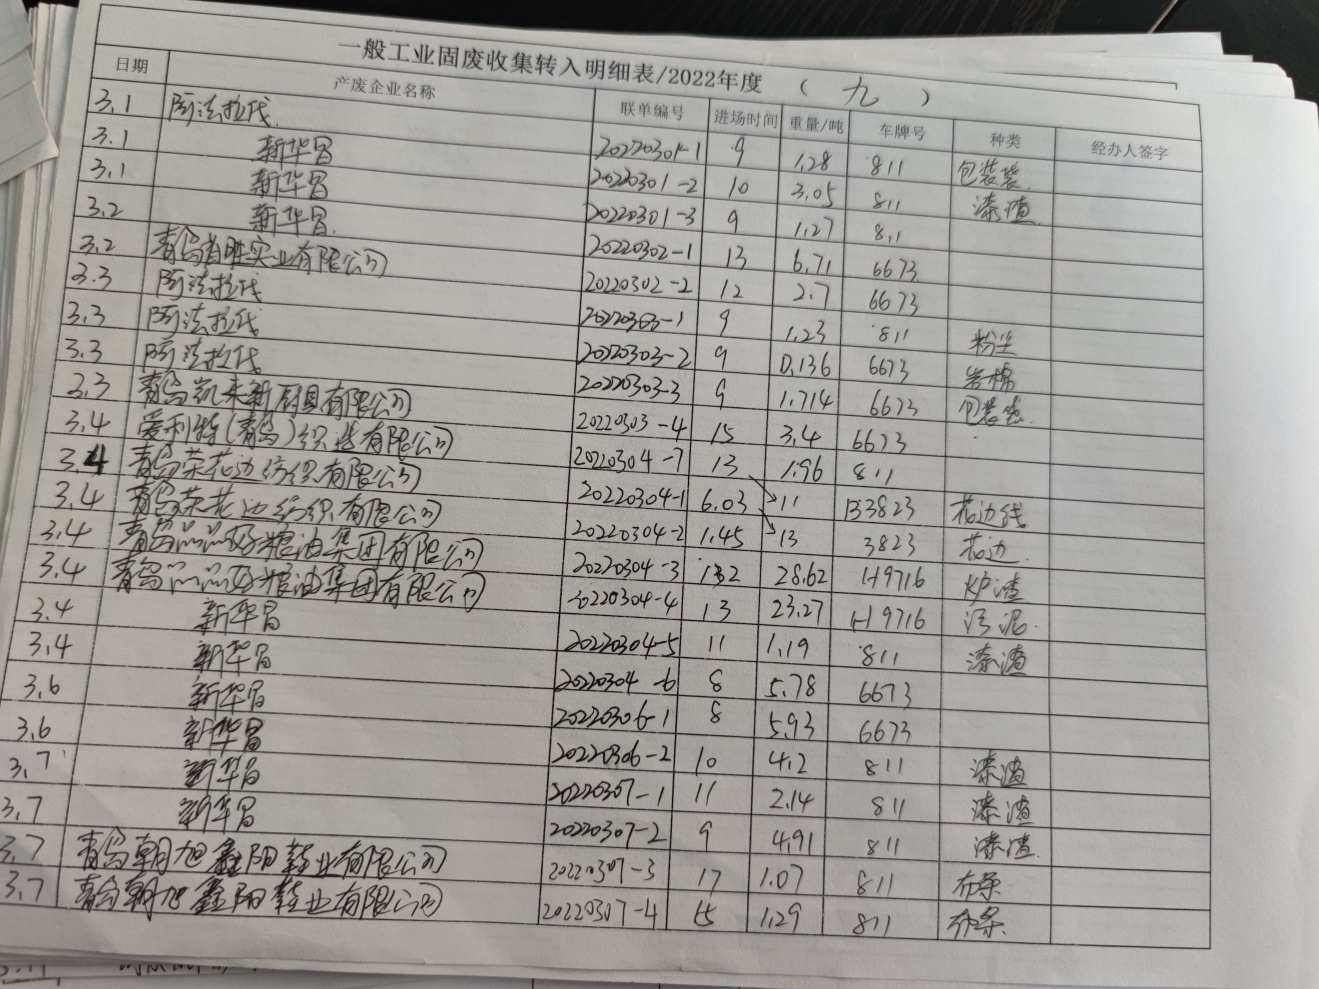 一般工业固废收集转入明细表/2022年度 (九)
日期 产废企业名称 联单编号 进场时间 重量/吨 车牌号 种类 经办人签字
3.1 阿法拉伐 20220301-1 9 1.28 811 包装袋
3.1 新华昌 20220301-2 10 3.05 811 漆渣
3.1 新华昌 20220301-3 9 1.27 811
3.2 新华昌 20220302-1 13 6.71 6673
3.2 青岛 实业有限公司 20220302-2 12 2.7 6673
3.3 阿法拉伐 20220303-1 9 1.23 811 粉尘
3.3 阿法拉伐 20220303-2 9 0.136 6673 岩棉
3.3 阿法拉伐 20220303-3 9 1.714 6673 包装袋
3.3 青岛凯来新厨具有限公司 20220303-4 15 3.4 6673
3.4 爱利特(青岛)织造有限公司 20220304-7 13 1.96 811
3.4 青岛荣花边纺织有限公司 20220304-1 6.03 11 B3823 花边线
3.4 青岛荣花边纺织有限公司 20220304-2 1.45 13 3823 花边
3.4 青岛品品好粮油集团有限公司 20220304-3 28.62 H9716 炉渣
3.4 青岛品品好粮油集团有限公司 20220304-4 13 23.27 H9716 污泥
3.4 新华昌 20220304-5 11 1.19 811 漆渣
3.4 新华昌 20220304-6 8 5.78 6673
3.6 新华昌 20220306-1 8 5.93 6673
3.6 新华昌 20220306-2 10 4.2 811 漆渣
3.7 新华昌 20220307-1 11 2.14 811 漆渣
3.7 新华昌 20220307-2 9 4.91 811 漆渣
3.7 青岛朝旭鑫阳鞋业有限公司 20220307-3 17 1.07 811 布条
3.7 青岛朝旭鑫阳鞋业有限公司 20220307-4 15 1.29 811 布条